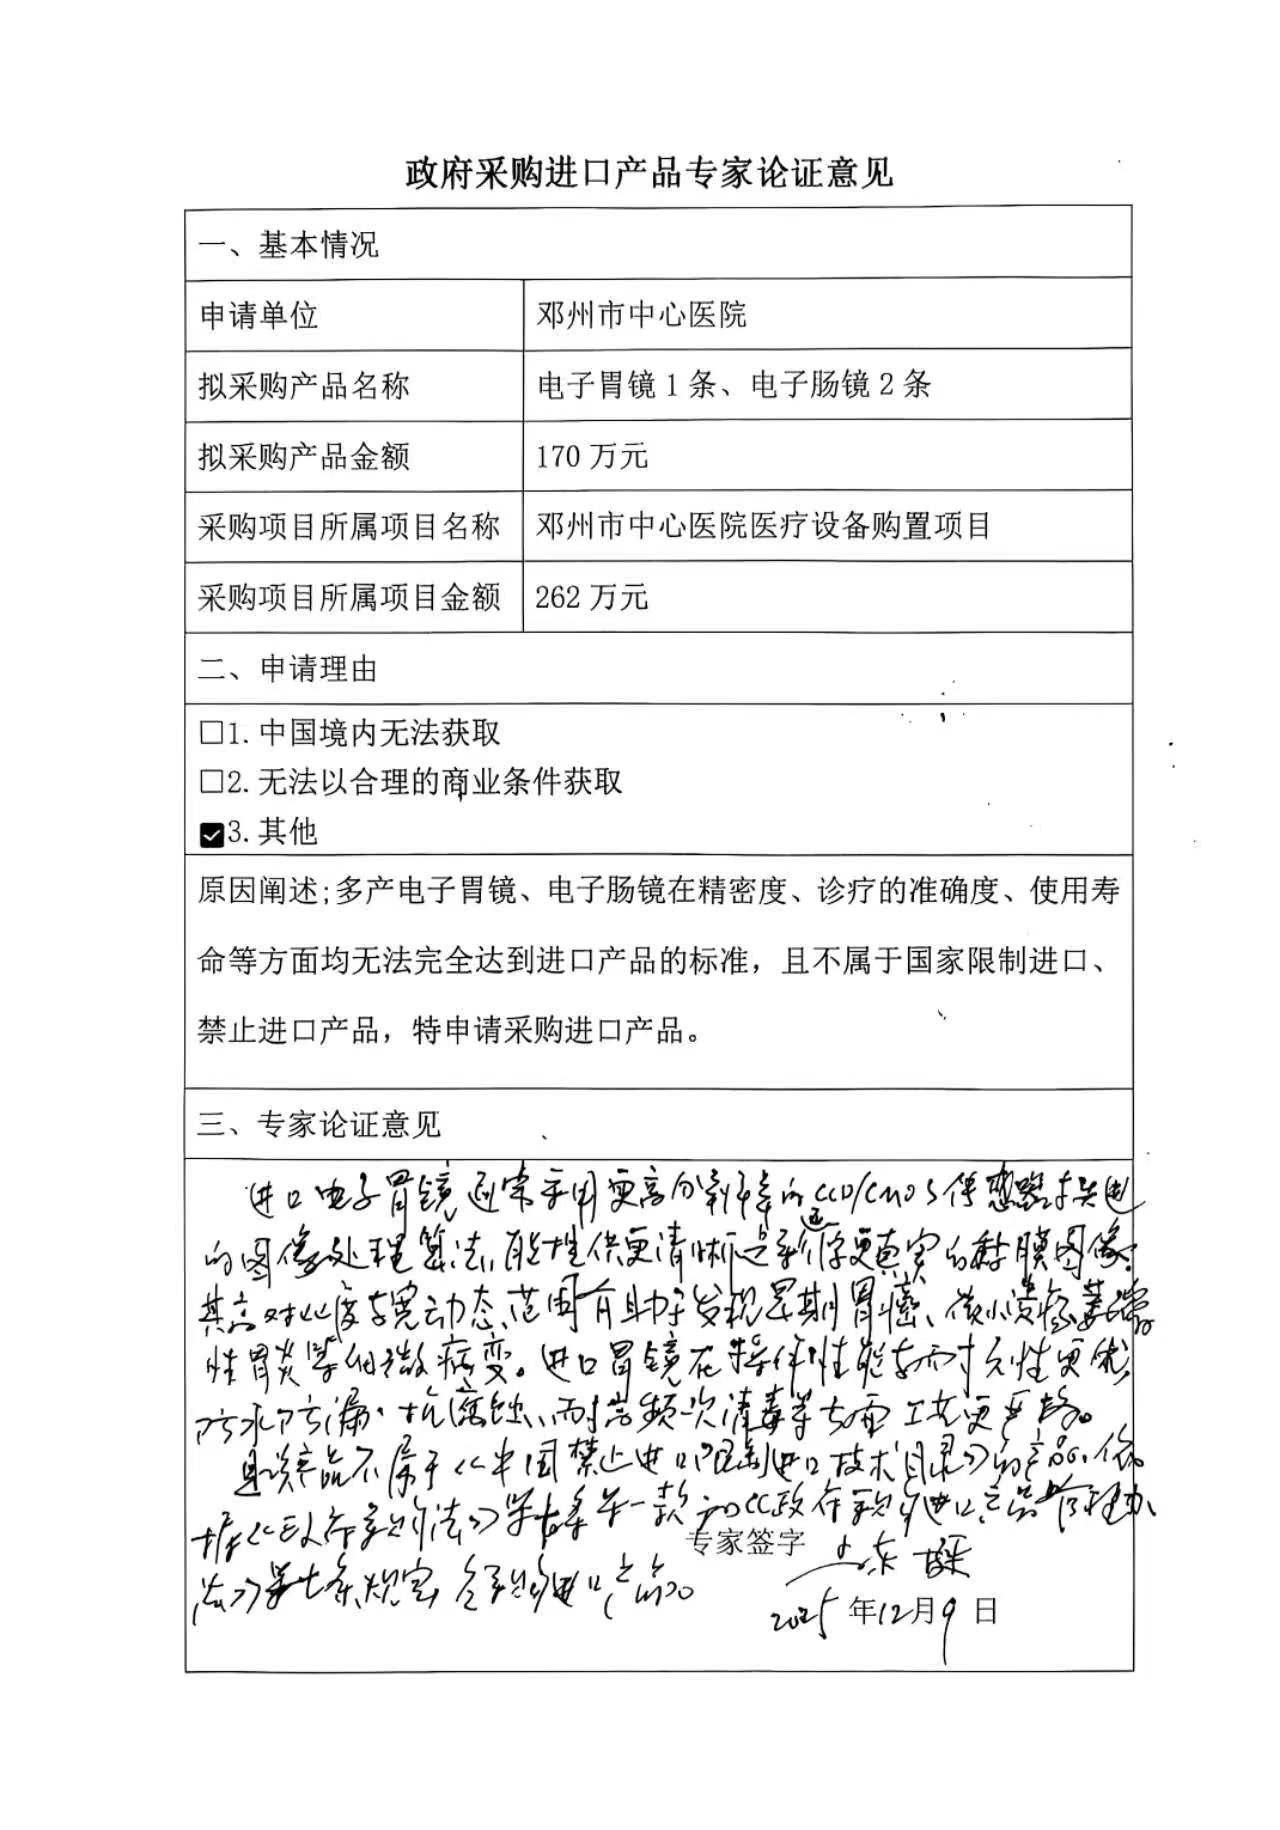 政府采购进口产品专家论证意见
一、基本情况
申请单位 邓州市中心医院
拟采购产品名称 电子胃镜1条、电子肠镜2条
拟采购产品金额 170万元
采购项目所属项目名称 邓州市中心医院医疗设备购置项目
采购项目所属项目金额 262万元
二、申请理由
□1.中国境内无法获取
□2.无法以合理的商业条件获取
☑3.其他
原因阐述;多产电子胃镜、电子肠镜在精密度、诊疗的准确度、使用寿
命等方面均无法完全达到进口产品的标准，且不属于国家限制进口、
禁止进口产品，特申请采购进口产品。
三、专家论证意见
进口电子胃镜通常采用更高分辨率的CCD/CMOS传感器
的图像处理算法，能提供更清晰 更真实的黏膜图像，
其高对比度与宽动态范围有助于发现早期胃癌、微小溃疡、萎缩
性胃炎等细微病变。进口胃镜在操作性能与耐久性更优，
防水防漏、抗腐蚀、耐高频次消毒等方面工艺更严格。
且该产品不属于《中国禁止进口限制进口技术目录》的产品。依
据《政府采购法》第十条第一款和《政府采购进口产品管理办
法》第七条规定， 采购进口产品。
专家签字
2025年12月9日